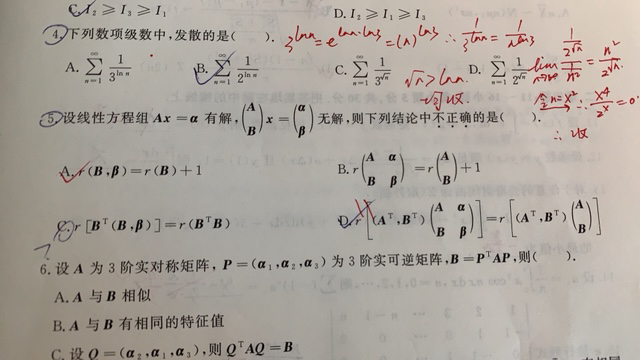 C. I₂ ≥ I₃ ≥ I₁ D. I₂ ≥ I₁ ≥ I₃
4. 下列数项级数中，发散的是( ). 3^{ln n} = e^{ln n·ln 3} = (n)^{ln 3} ∴ 1/3^{ln n} = 1/n^{ln 3}
A. ∑_{n=1}^{∞} 1/3^{ln n} B. ∑_{n=1}^{∞} 1/2^{ln n} C. ∑_{n=1}^{∞} 1/3^{√n} D. ∑_{n=1}^{∞} 1/2^{√n}
√n > ln n
lim_{n→∞} (1/2^{√n})/(1/n²) = n²/2^{√n}
n = x² ∴ x⁴/2^x = 0
∴ 收
5. 设线性方程组 Ax = α 有解，(A B)x = (α β) 无解，则下列结论中不正确的是( ).
A. r(B, β) = r(B) + 1 B. r(A α B β) = r(A B) + 1
C. r[Bᵀ(B, β)] = r(BᵀB) D. r[(Aᵀ, Bᵀ)(A α B β)] = r[(Aᵀ, Bᵀ)(A B)]
6. 设 A 为 3 阶实对称矩阵，P = (α₁, α₂, α₃) 为 3 阶实可逆矩阵，B = PᵀAP，则( ).
A. A 与 B 相似
B. A 与 B 有相同的特征值
C. 设 Q = (α₂, α₁, α₃)，则 QᵀAQ = B